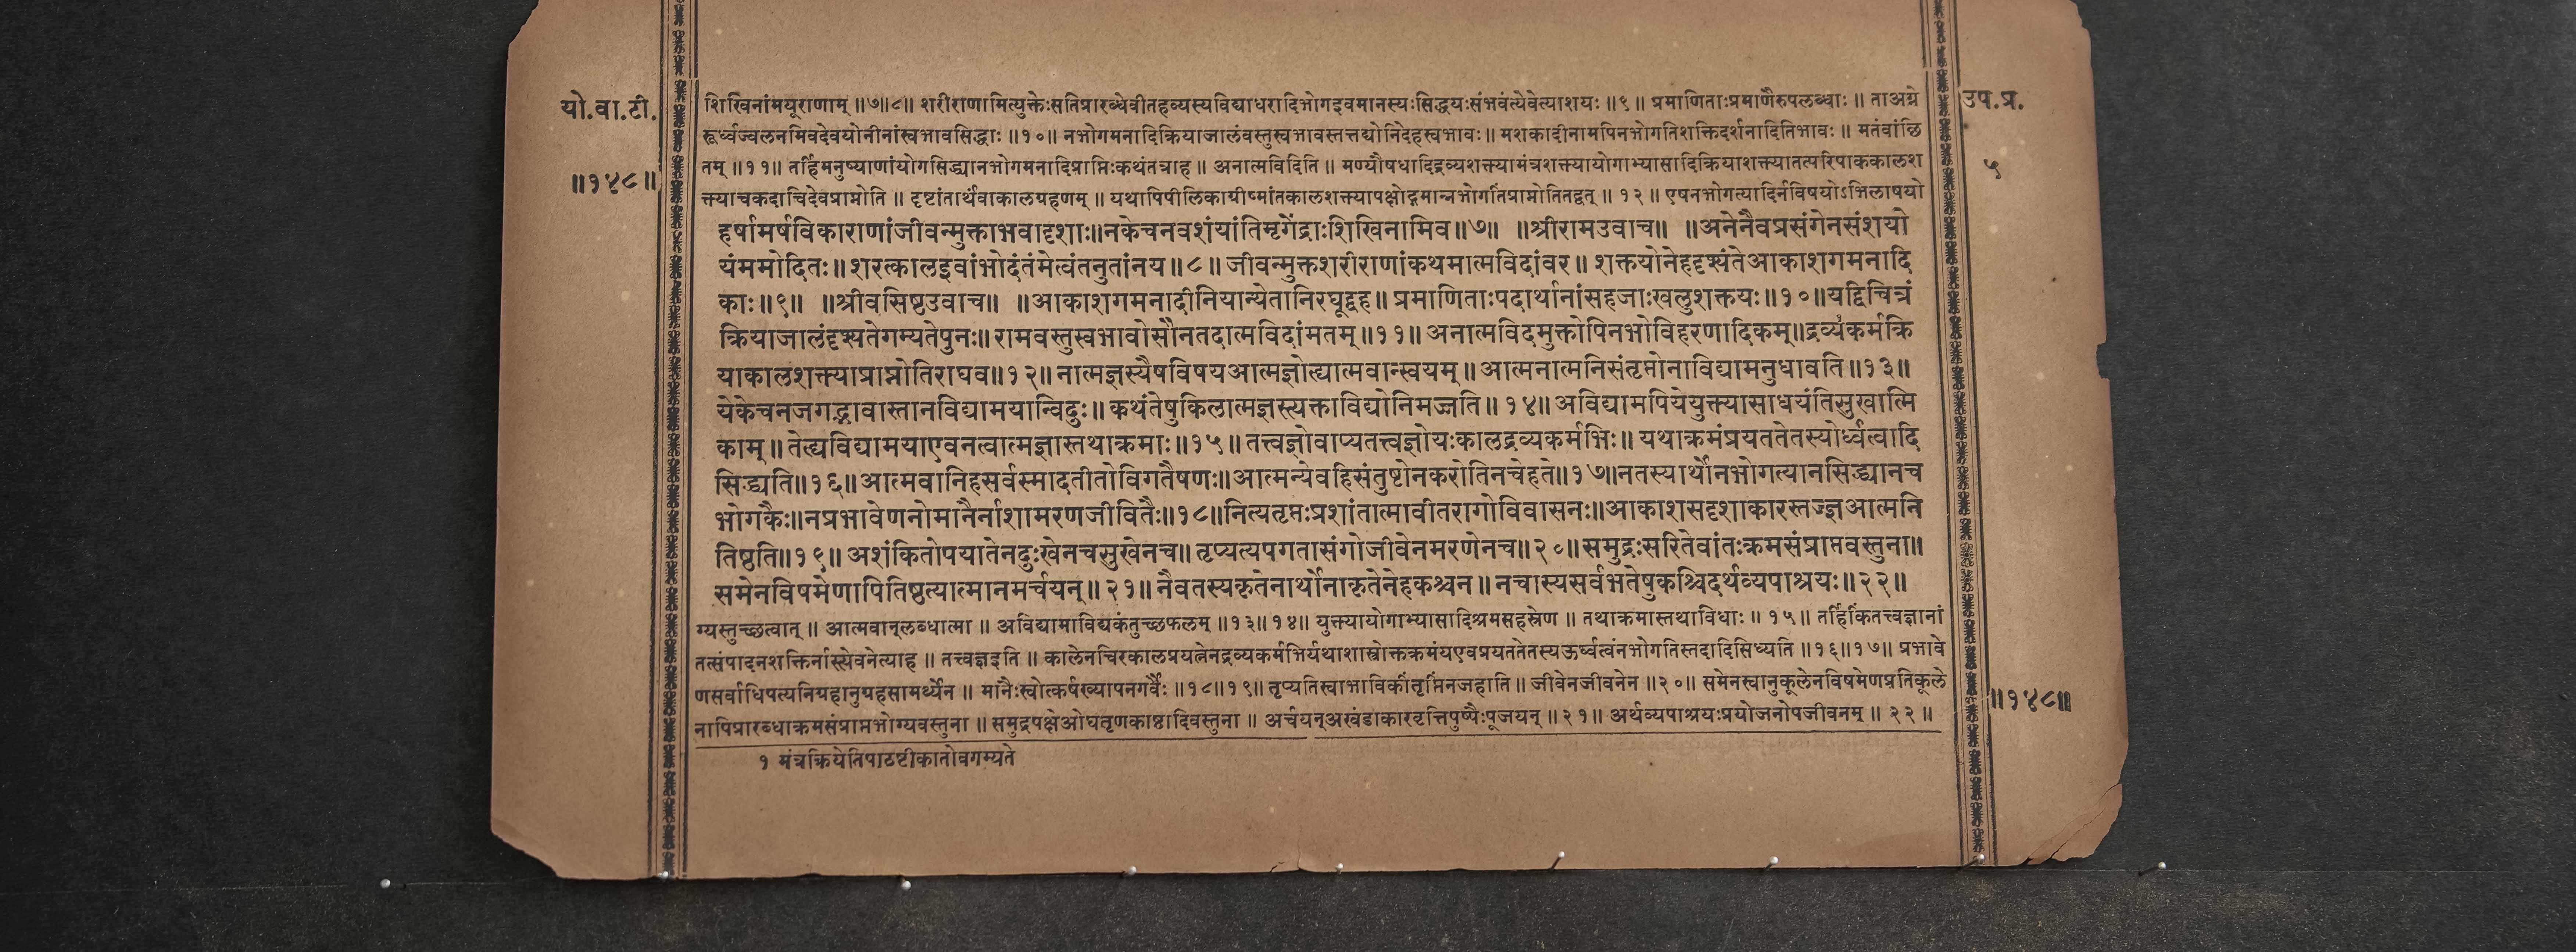 यो.वा.टी.
॥१४८॥
उप.प्र.
५
शिखिनांमयूराणाम् ॥७॥८॥ शरीराणामित्युक्तेःसतिप्रारब्धेवीतहव्यस्यविद्याधरादिभोगइवमानस्यःसिद्धयःसंभवंत्येवेत्याशयः ॥९॥ प्रमाणिताःप्रमाणैरुपलब्धाः ॥ ताअग्ने
रूर्ध्वज्वलनमिवदेवयोनीनांस्वभावसिद्धाः ॥१०॥ नभोगमनादिक्रियाजालंवस्तुस्वभावस्तत्तद्योनिदेहस्वभावः ॥ मशकादीनामपिनभोगतिशक्तिदर्शनादितिभावः ॥ मतंवांछि
तम् ॥११॥ तर्हिमनुष्याणांयोगसिद्ध्यानभोगमनादिप्राप्तिःकथंतत्राह ॥ अनात्मविदिति ॥ मण्यौषधादिद्रव्यशक्त्यामंत्रशक्त्यायोगाभ्यासादिक्रियाशक्त्यातत्परिपाककालश
क्त्याचकदाचिदेवप्राप्नोति ॥ दृष्टांतार्थंवाकालग्रहणम् ॥ यथापिपीलिकाग्रीष्मांतकालशक्त्यापक्षोद्गमान्नभोगतिंप्राप्नोतितद्वत् ॥ १२॥ एषनभोगत्यादिर्नविषयोऽभिलाषयो
हर्षामर्षविकाराणांजीवन्मुक्ताभवादृशाः॥नकेचनवशंयांतिमृगेंद्राःशिखिनामिव॥७॥ ॥श्रीरामउवाच॥ ॥अनेनैवप्रसंगेनसंशयो
यंममोदितः॥शरत्कालइवांभोदंतंमेत्वंतनुतांनय॥८॥ जीवन्मुक्तशरीराणांकथमात्मविदांवर॥ शक्तयोनेहदृश्यंतेआकाशगमनादि
काः॥९॥ ॥श्रीवसिष्ठउवाच॥ ॥आकाशगमनादीनियान्येतानिरघूद्वह॥ प्रमाणिताःपदार्थानांसहजाःखलुशक्तयः॥१०॥यद्विचित्रं
क्रियाजालंदृश्यतेगम्यतेपुनः॥रामवस्तुस्वभावोसौनतदात्मविदांमतम्॥११॥ अनात्मविदमुक्तोपिनभोविहरणादिकम्॥द्रव्यकर्मक्रि
याकालशक्त्याप्राप्नोतिराघव॥१२॥ नात्मज्ञस्यैषविषयआत्मज्ञोत्द्यात्मवान्स्वयम्॥ आत्मनात्मनिसंतृप्तोनाविद्यामनुधावति॥१३॥
येकेचनजगद्भावास्तानविद्यामयान्विदुः॥ कथंतेषुकिलात्मज्ञस्त्यक्ताविद्योनिमज्जति॥ १४॥ अविद्यामपियेयुक्त्यासाधयंतिसुखात्मि
काम्॥ तेत्द्यविद्यामयाएवनत्वात्मज्ञास्तथाक्रमाः॥१५॥ तत्त्वज्ञोवाप्यतत्त्वज्ञोयःकालद्रव्यकर्मभिः॥ यथाक्रमंप्रयततेतस्योर्ध्वत्वादि
सिद्ध्यति॥१६॥आत्मवानिहसर्वस्मादतीतोविगतैषणः॥आत्मन्येवहिसंतुष्टोनकरोतिनचेहते॥१७॥नतस्यार्थोनभोगत्यानसिद्ध्यानच
भोगकैः॥नप्रभावेणनोमानैर्नाशामरणजीवितैः॥१८॥नित्यतृप्तःप्रशांतात्मावीतरागोविवासनः॥आकाशसदृशाकारस्तज्ज्ञआत्मनि
तिष्ठति॥१९॥ अशंकितोपयातेनदुःखेनचसुखेनच॥ तृप्यत्यपगतासंगोजीवेनमरणेनच॥२०॥समुद्रःसरितेवांतःक्रमसंप्राप्तवस्तुना॥
समेनविषमेणापितिष्ठत्यात्मानमर्चयन्॥२१॥ नैवतस्यकृतेनार्थोनाकृतेनेहकश्चन॥ नचास्यसर्वभूतेषुकश्चिदर्थव्यपाश्रयः॥२२॥
ग्यस्तुच्छत्वात् ॥ आत्मवान्लब्धात्मा ॥ अविद्यामाविद्यकंतुच्छफलम् ॥१३॥१४॥ युक्त्यायोगाभ्यासादिश्रमसहस्रेण ॥ तथाक्रमास्तथाविधाः ॥ १५॥ तर्हिकिंतत्त्वज्ञानां
तत्संपादनशक्तिर्नास्त्येवनेत्याह ॥ तत्त्वज्ञइति ॥ कालेनचिरकालप्रयत्नेनद्रव्यकर्मभिर्यथाशास्त्रोक्तक्रमंयएवप्रयततेतस्यऊर्ध्वत्वंनभोगतिस्तदादिसिध्यति ॥१६॥१७॥ प्रभावे
णसर्वाधिपत्यनिग्रहानुग्रहसामर्थ्येन ॥ मानैःस्वोत्कर्षख्यापनगर्वैः ॥१८॥१९॥तृप्यतिस्वाभाविकींतृप्तिंनजहाति ॥ जीवेनजीवनेन ॥२०॥ समेनस्वानुकूलेनविषमेणप्रतिकूले
नापिप्रारब्धाक्रमसंप्राप्तभोग्यवस्तुना ॥ समुद्रपक्षेओघतृणकाष्ठादिवस्तुना ॥ अर्चयन्अखंडाकारवृत्तिपुष्पैःपूजयन् ॥२१॥ अर्थव्यपाश्रयःप्रयोजनोपजीवनम् ॥ २२॥
॥१४८॥
१ मंत्रक्रियेतिपाठष्टीकातोवगम्यते